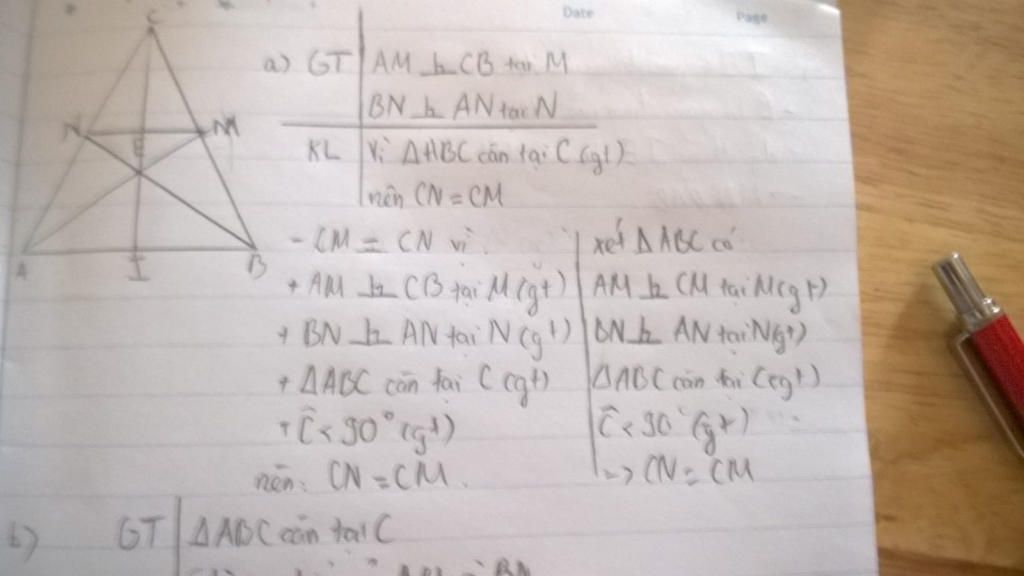 Date Page
C
N M
E
A I B
a) GT AM ⊥ CB tại M
BN ⊥ AN tại N
KL Vì ΔABC cân tại C (gt)
nên CN = CM
- CM = CN vì
+ AM ⊥ CB tại M (gt)
+ BN ⊥ AN tại N (gt)
+ ΔABC cân tại C (gt)
+ Ĉ < 90° (gt)
nên: CN = CM.
xét ΔABC có
AM ⊥ CM tại M (gt)
BN ⊥ AN tại N (gt)
ΔABC cân tại C (gt)
Ĉ < 90° (gt)
=> CN = CM
b) GT ΔABC cân tại C
BN